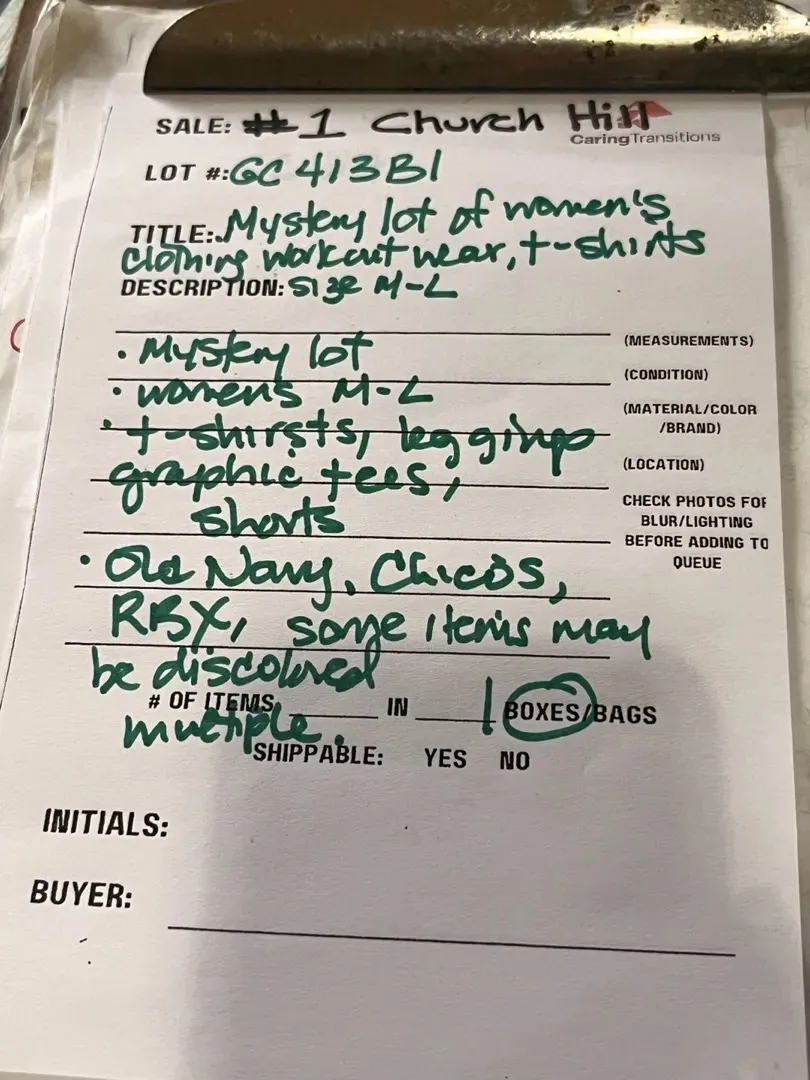 SALE: #1 Church Hill
CaringTransitions
LOT #: GC413B1
TITLE: Mystery lot of women's
clothing workout wear, t-shirts
DESCRIPTION: size M-L
(MEASUREMENTS)
• Mystery lot
(CONDITION)
• womens M-L
(MATERIAL/COLOR
/BRAND)
• t-shirsts, leggings
(LOCATION)
graphic tees,
shorts
CHECK PHOTOS FOR
BLUR/LIGHTING
BEFORE ADDING TO
QUEUE
• Old Navy, Chicos,
RBX, some items may
be discolored
# OF ITEMS multiple. IN 1 BOXES/BAGS
SHIPPABLE: YES NO
INITIALS:
BUYER: